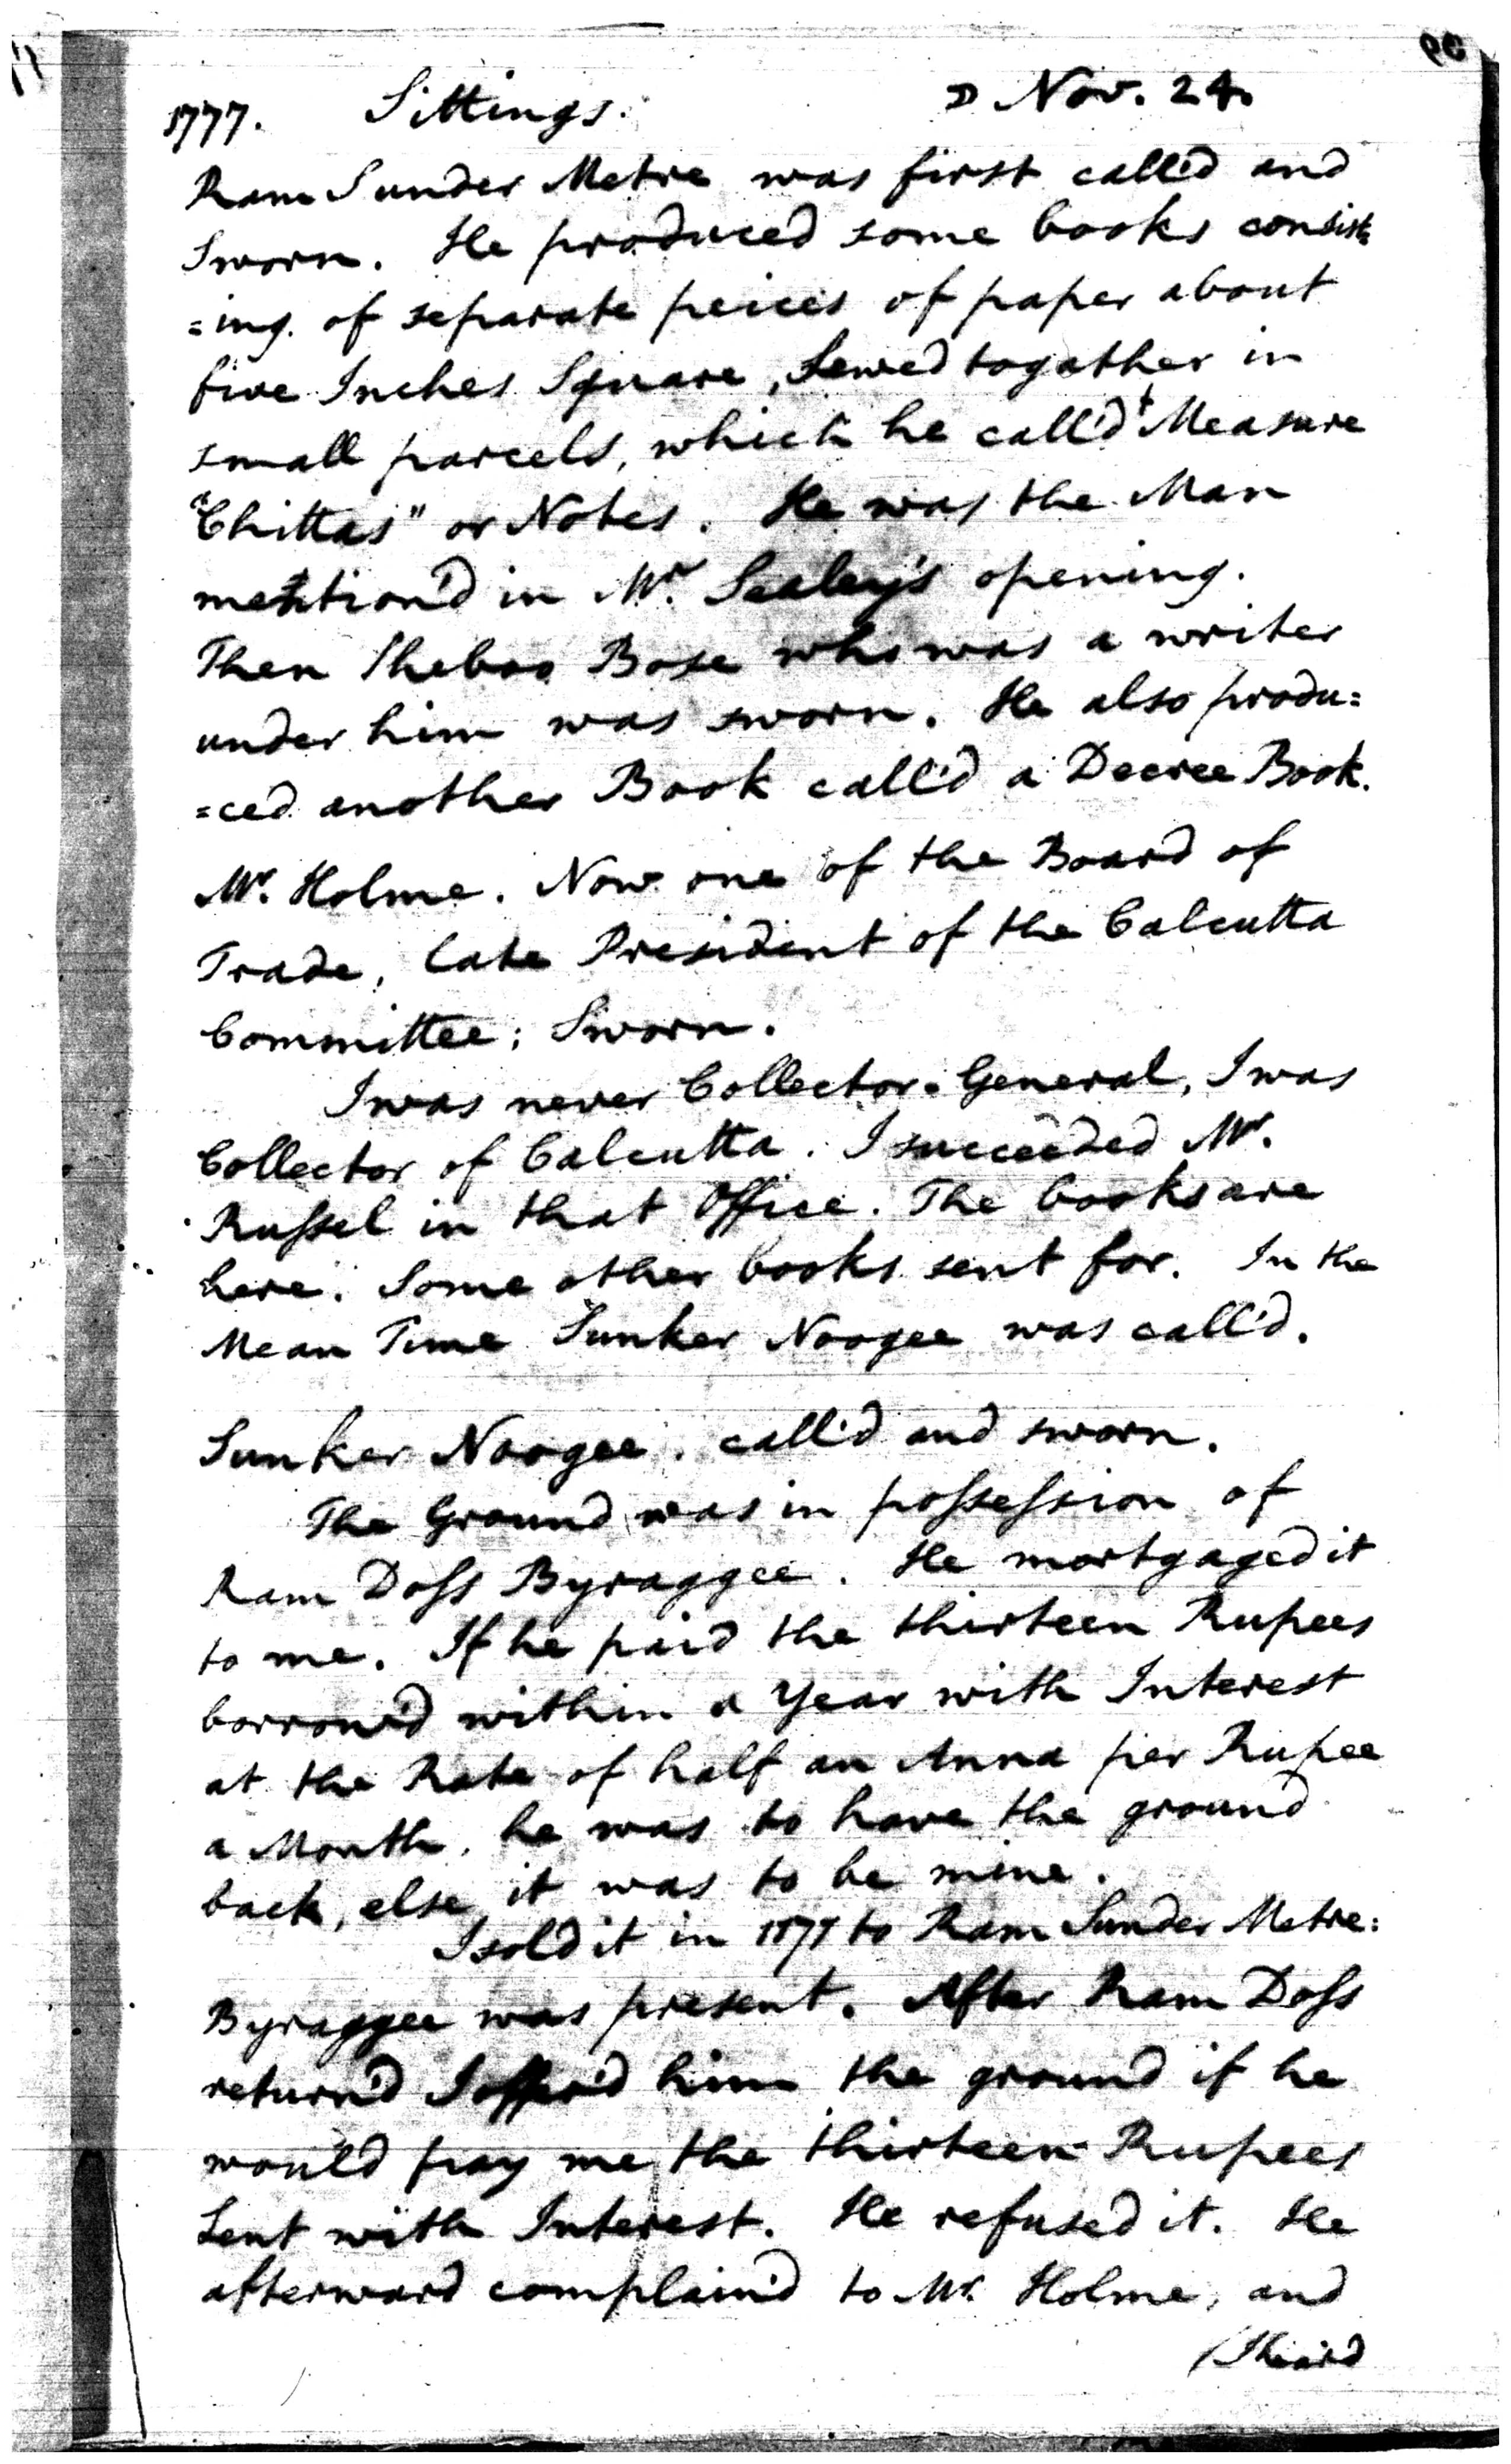 1777. Sittings. ☽ Nov. 24.
Ram Sunder Metre was first call'd and
Sworn. He produced some books consist
=ing. of separate peices of paper about
five Inches Square, Sewed togather in
small parcels, which he call'd "Measure
"Chittas" or Notes. He was the Man
mention'd in Mr. Sealey's opening.
Then Sheboo Bose who was a writer
under him was sworn. He also produ=
=ced another Book call'd a Decree Book.
Mr. Holme. Now one of the Board of
Trade, late President of the Calcutta
Committee; Sworn.
I was never Collector-General, I was
Collector of Calcutta. I succeeded Mr.
Russel in that Office. The books are
here. Some other books sent for. In the
Mean Time Sunker Noogee was call'd.
Sunker Noogee. call'd and sworn.
The Ground was in possession of
Ram Doss Byraggee. He mortgaged it
to me. If he paid the thirteen Rupees
borrow'd within a Year with Interest
at the Rate of half an Anna per Rupee
a Month, he was to have the ground
back, else it was to be mine.
I sold it in to Ram Sunder Metre:
Byraggee was present. After Ram Doss
return'd I offer'd him the ground if he
would pay me the thirteen Rupees
Lent with Interest. He refused it. He
afterward complain'd to Mr. Holme, and
/I heard